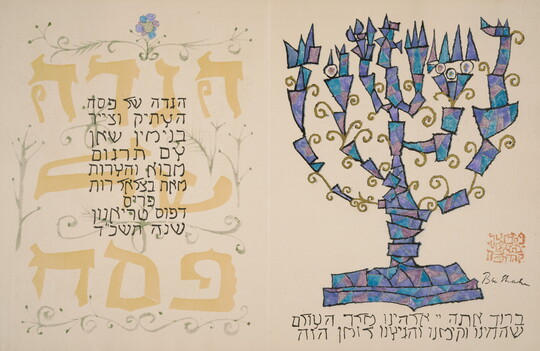 הגדה
של
פסח
הגדה של פסח
העתיק וצייר
בנימין שאן
עם תרגום
מבוא והערות
מאת בצלאל רות
פריס
דפוס טריאנון
שנת
ברוך אתה יי אלהינו מלך העולם
שהחינו וקימנו והגיענו לזמן הזה
Ben Shahn